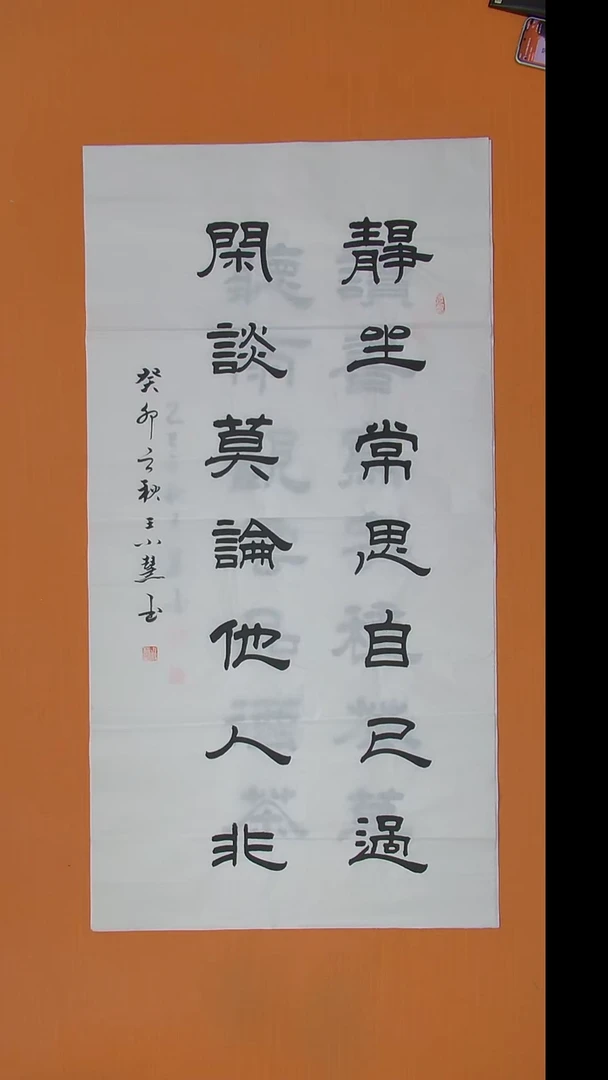 靜坐常思自己過
閑談莫論他人非
癸卯立秋王小慧書